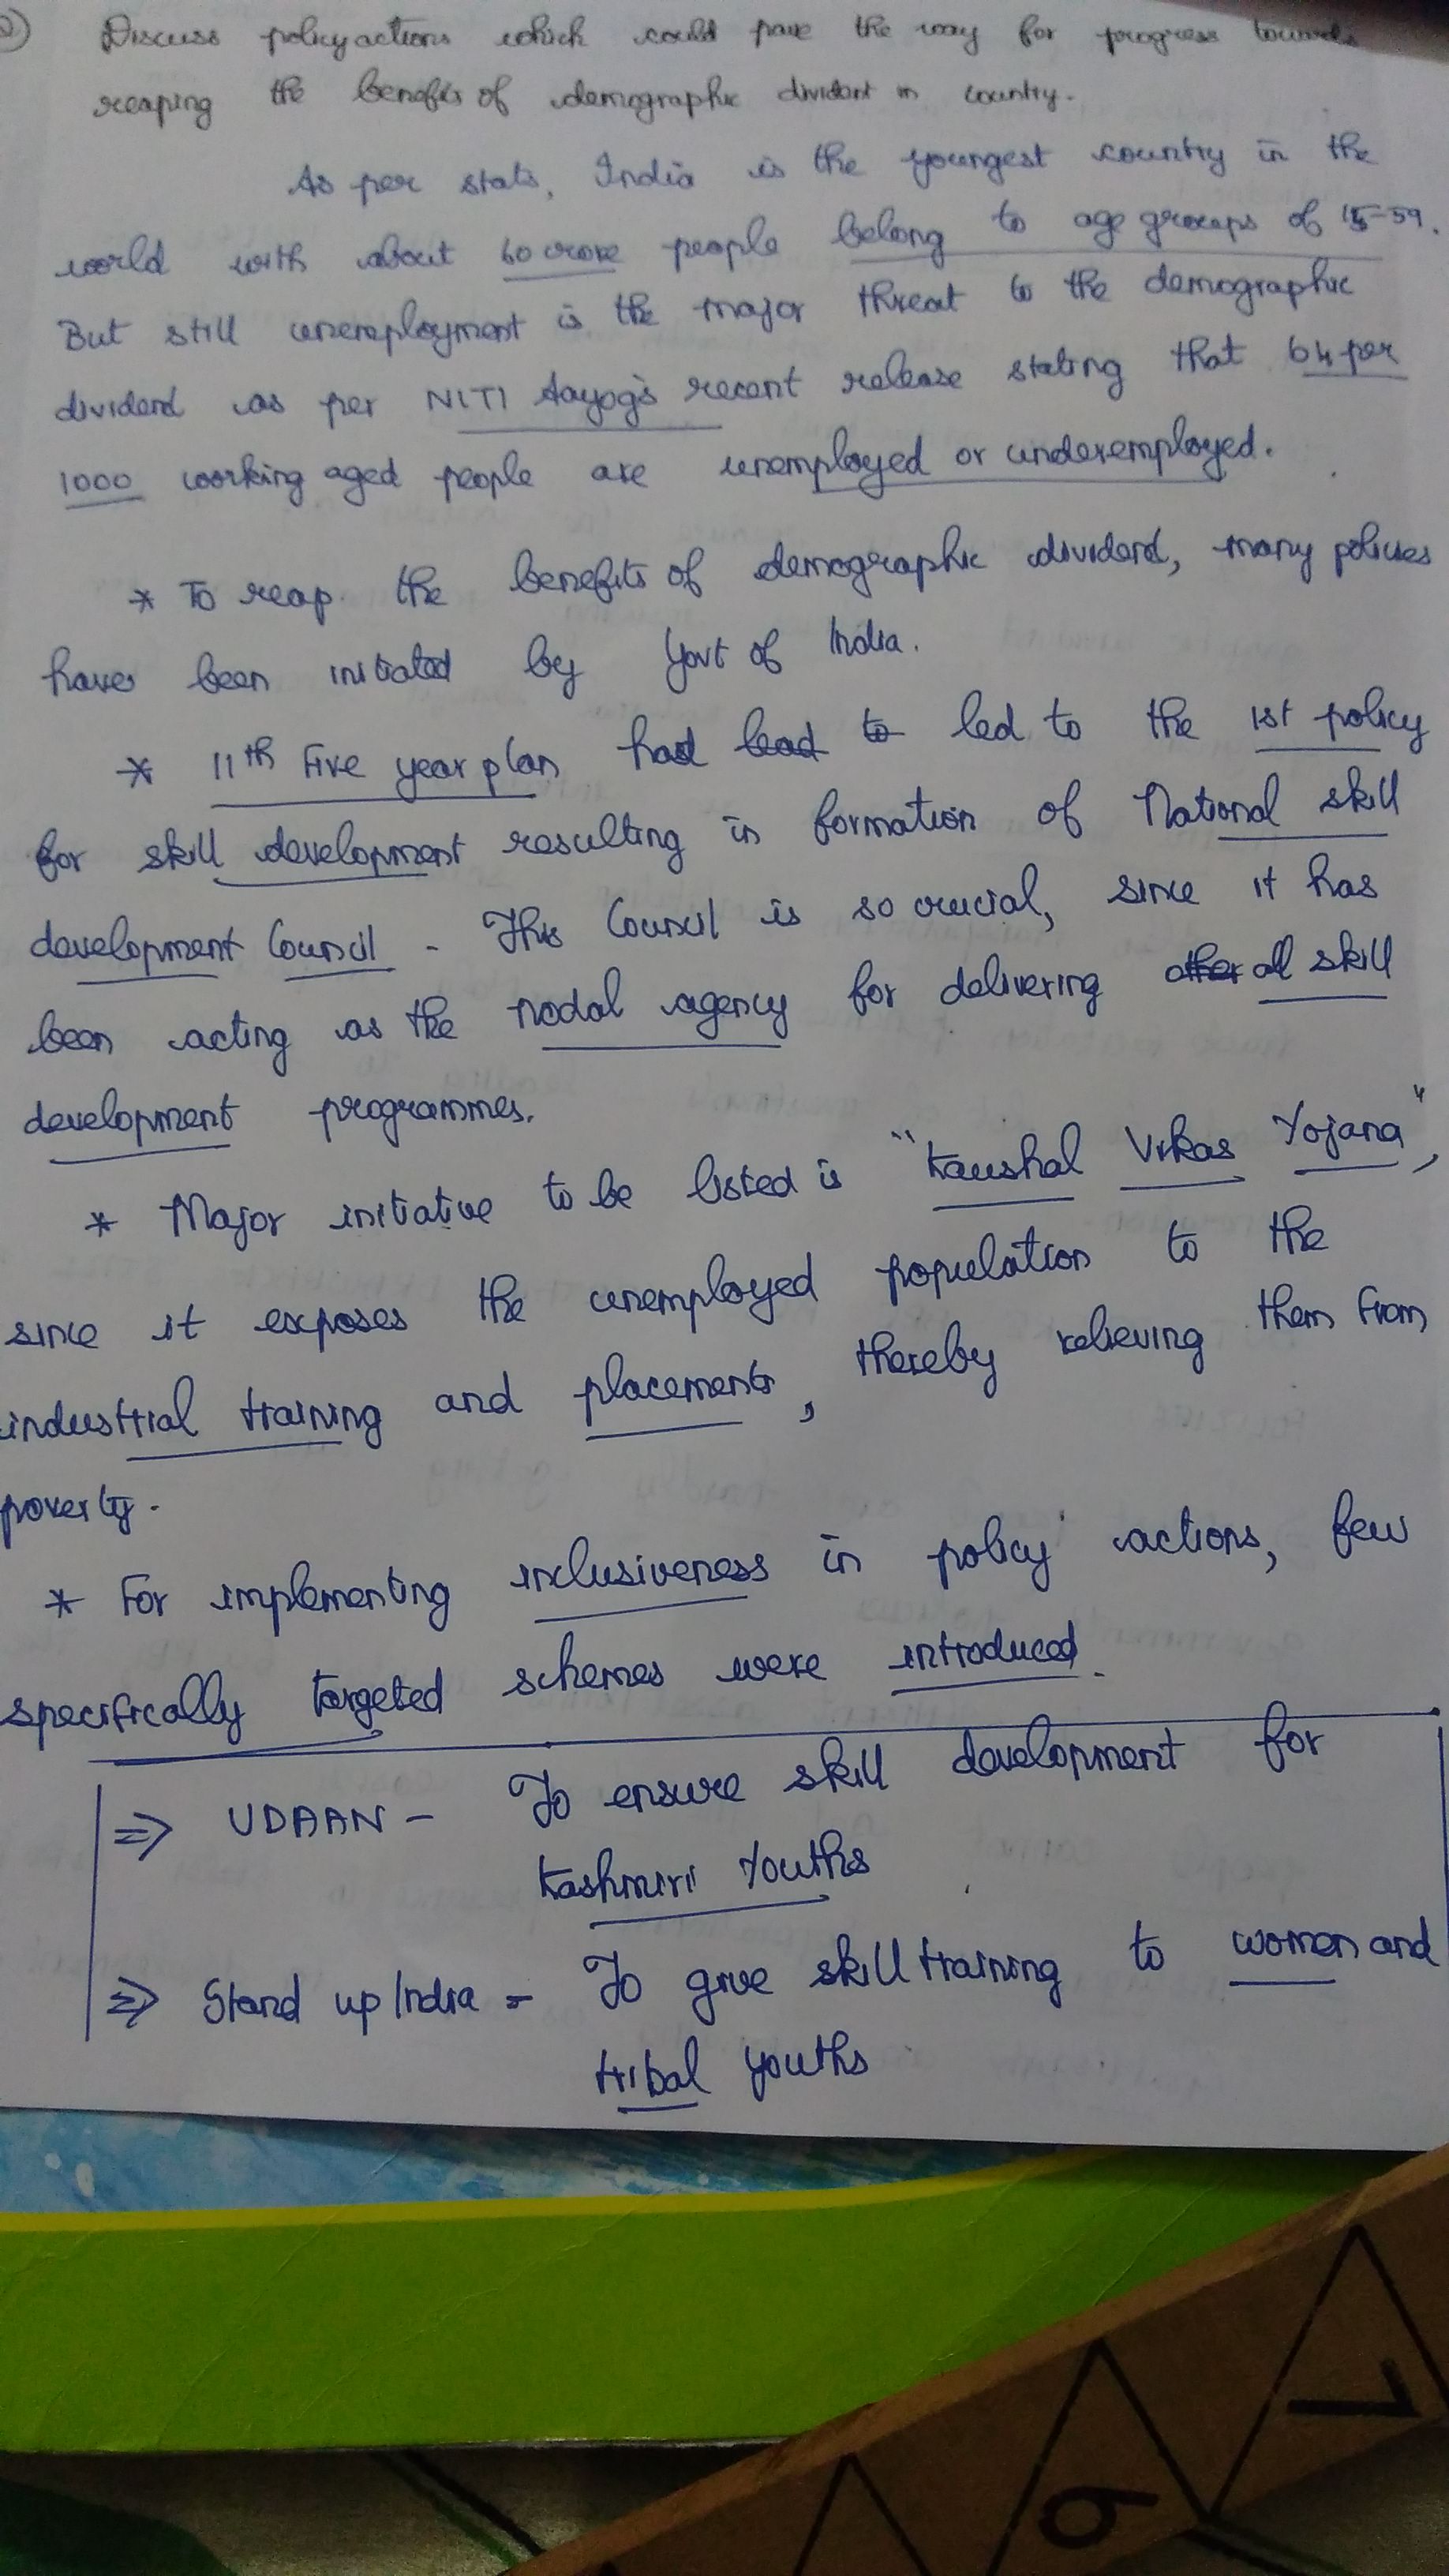 Discuss policy actions which could pave the way for progress towards
reaping the benefits of demographic divident in country.
As per stats, India is the youngest country in the
world with about 60 crore people belong to age groups of 15-59.
But still unemployment is the major threat to the demographic
dividend as per NITI Aayog's recent release stating that 64 per
1000 working aged people are unemployed or underemployed.
* To reap the benefits of demographic dividend, many policies
have been initiated by Govt of India.
* 11th Five year plan had lead to led to the 1st policy
for skill development resulting in formation of National skill
development Council - This Council is so crucial, since it has
been acting as the nodal agency for delivering other all skill
development programmes.
* Major initiative to be listed is "Kaushal Vikas Yojana",
since it exposes the unemployed population to the
industrial training and placements, thereby relieving them from
poverty.
* For implementing inclusiveness in policy actions, few
specifically targeted schemes were introduced.
⇒ UDAAN - To ensure skill development for
Kashmiri Youths
⇒ Stand up India - To give skill training to women and
tribal youths
6
7